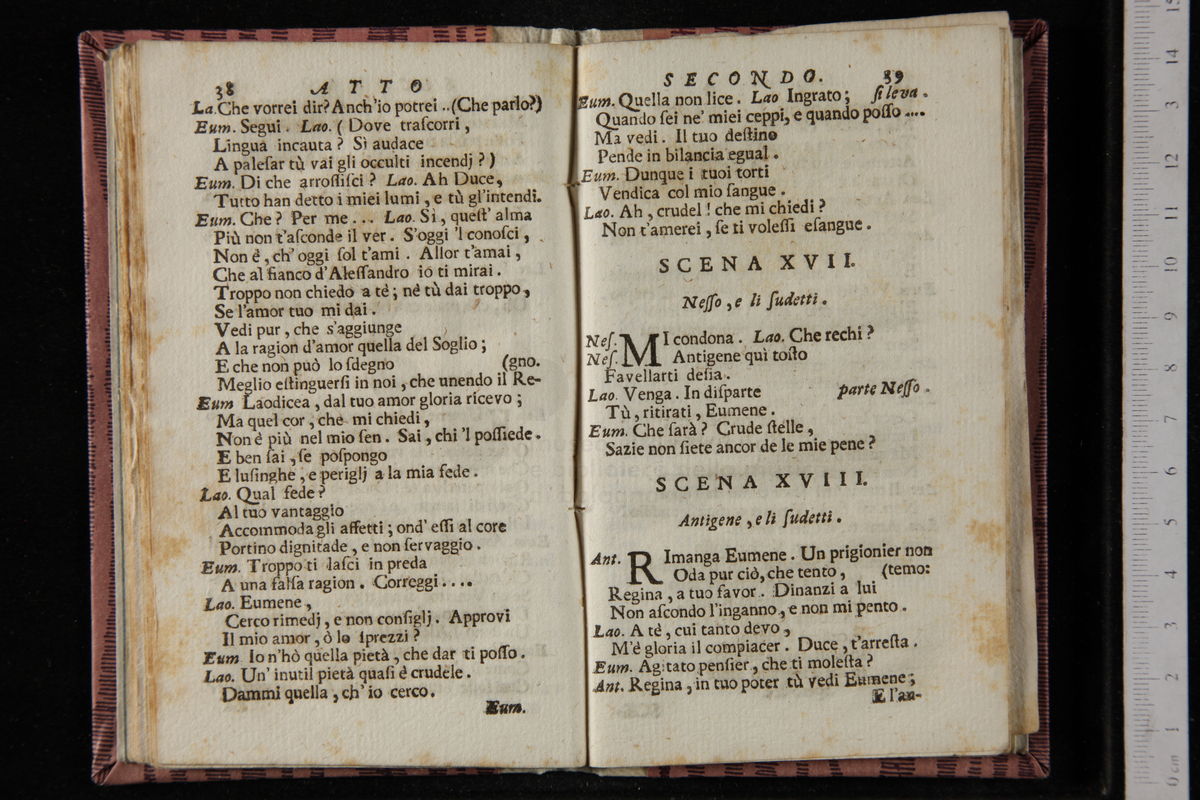 38 ATTO
La. Che vorrei dir? Anch'io potrei ..(Che parlo?)
Eum. Segui. Lao. (Dove traſcorri,
Lingua incauta? Sì audace
A paleſar tù vai gli occulti incendj?)
Eum. Di che arroſſiſci? Lao. Ah Duce,
Tutto han detto i miei lumi, e tù gl'intendi.
Eum. Che? Per me... Lao. Sì, queſt' alma
Più non t'aſconde il ver. S'oggi 'l conoſci,
Non è, ch' oggi ſol t'ami. Allor t'amai,
Che al fianco d'Aleſſandro io ti mirai.
Troppo non chiedo a tè; nè tù dai troppo,
Se l'amor tuo mi dai.
Vedi pur, che s'aggiunge
A la ragion d'amor quella del Soglio;
E che non può lo ſdegno (gno.
Meglio eſtinguerſi in noi, che unendo il Re-
Eum Laodicea, dal tuo amor gloria ricevo;
Ma quel cor, che mi chiedi,
Non è più nel mio ſen. Sai, chi 'l poſſiede.
E ben ſai, ſe poſpongo
E luſinghe, e periglj a la mia fede.
Lao. Qual fede?
Al tuo vantaggio
Accommoda gli affetti; ond' eſſi al core
Portino dignitade, e non ſervaggio.
Eum. Troppo ti laſci in preda
A una falſa ragion. Correggi....
Lao. Eumene,
Cerco rimedj, e non conſiglj. Approvi
Il mio amor, ò lo ſprezzi?
Eum Io n'hò quella pietà, che dar ti poſſo.
Lao. Un' inutil pietà quaſi è crudele.
Dammi quella, ch' io cerco.
Eum.
SECONDO. 39
Eum. Quella non lice. Lao Ingrato; ſi leva.
Quando ſei ne' miei ceppi, e quando poſſo ....
Ma vedi. Il tuo deſtino
Pende in bilancia egual.
Eum. Dunque i tuoi torti
Vendica col mio ſangue.
Lao. Ah, crudel! che mi chiedi?
Non t'amerei, ſe ti voleſſi eſangue.
SCENA XVII.
Neſſo, e li ſudetti.
Neſ. MI condona. Lao. Che rechi?
Neſ. Antigene quì toſto
Favellarti deſia.
Lao. Venga. In diſparte parte Neſſo.
Tù, ritirati, Eumene.
Eum. Che ſarà? Crude ſtelle,
Sazie non ſiete ancor de le mie pene?
SCENA XVIII.
Antigene, e li ſudetti.
Ant. RImanga Eumene. Un prigionier non
Oda pur ciò, che tento, (temo:
Regina, a tuo favor. Dinanzi a lui
Non aſcondo l'inganno, e non mi pento.
Lao. A tè, cui tanto devo,
M'è gloria il compiacer. Duce, t'arreſta.
Eum. Agitato penſier, che ti moleſta?
Ant. Regina, in tuo poter tù vedi Eumene;
E l'an-
0 cm 1 2 3 4 5 6 7 8 9 10 11 12 13 14 15